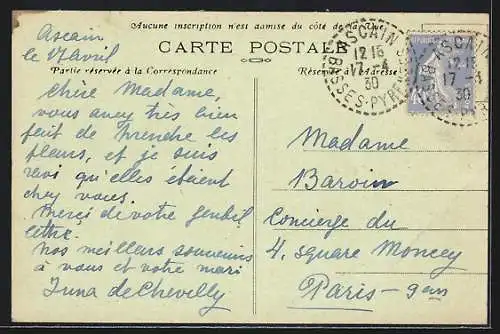 Aucune inscription n'est admise du côté de la Vue
CARTE POSTALE
Partie réservée à la Correspondance
Réservé à l'Adresse
ASCAIN
12 15
17 - 4
30
BASSES-PYR
ASCAIN
12 15
17 - 4
30
Ascain
le 17 avril
Chère Madame,
vous avez très bien
fait de prendre les
fleurs, et je suis
ravi qu'elles étaient
chez vous.
Merci de votre gentil
lettre.
Nos meilleurs souvenirs
à vous et votre mari
Madame
Baroin
Concierge du
4, square Moncey
Paris - 9em